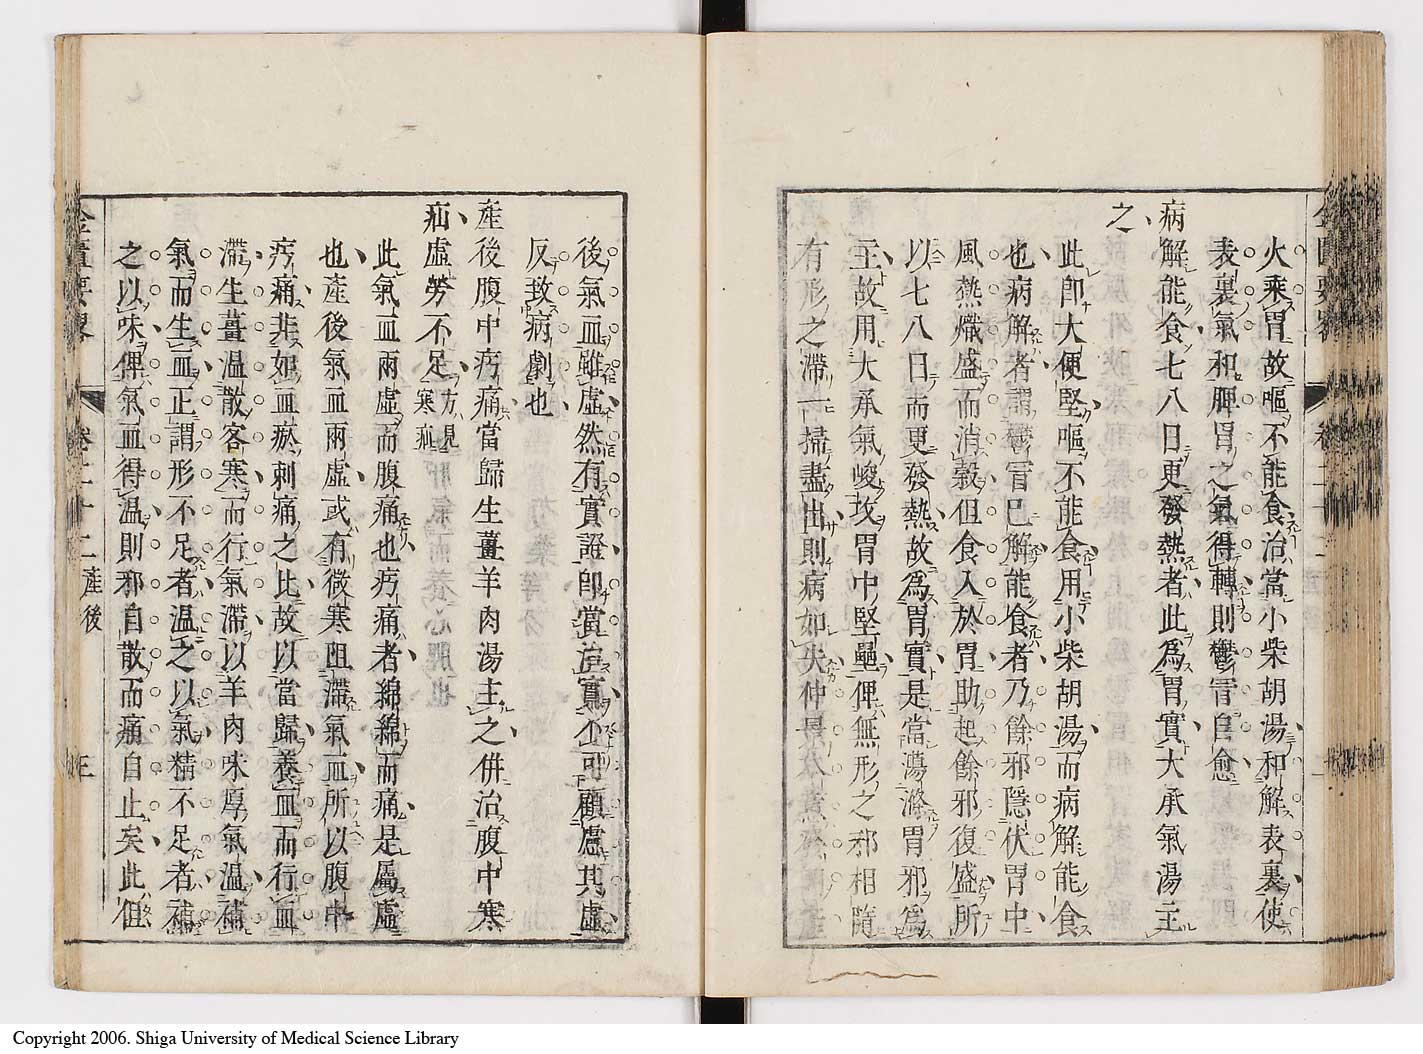 火乘胃故嘔不能食治當小柴胡湯和解表裏使
表裏氣和脾胃之氣得轉則鬱冒自愈
病解能食七八日更發熱者此為胃實大承氣湯主
之
此即大便堅嘔不能食用小柴胡湯而病解能食
也病解者謂鬱冒已解能食者乃餘邪隱伏胃中
風熱熾盛而消穀但食入於胃助起餘邪復盛所
以七八日而更發熱故為胃實是當蕩滌胃邪為
主故用大承氣峻攻胃中堅壘俾無形之邪相隨
有形之滯一掃盡出則病如失仲景
後氣血雖虛然有實證即當治實不可顧慮其虛
反致病劇也
產後腹中㽲痛當歸生薑羊肉湯主之併治腹中寒
疝虛勞不足方見寒疝
此氣血兩虛而腹痛也㽲痛者綿綿而痛是屬虛
也產後氣血兩虛或有微寒阻滯氣血所以腹中
㽲痛非如血瘀刺痛之比故以當歸養血而行血
滯生薑温散客寒而行氣滯以羊肉味厚氣温補
氣而生血正謂形不足者温之以氣精不足者補
之以味俾氣血得温則邪自散而痛自止矣此但
金匱要畧 卷二十二 產後 三